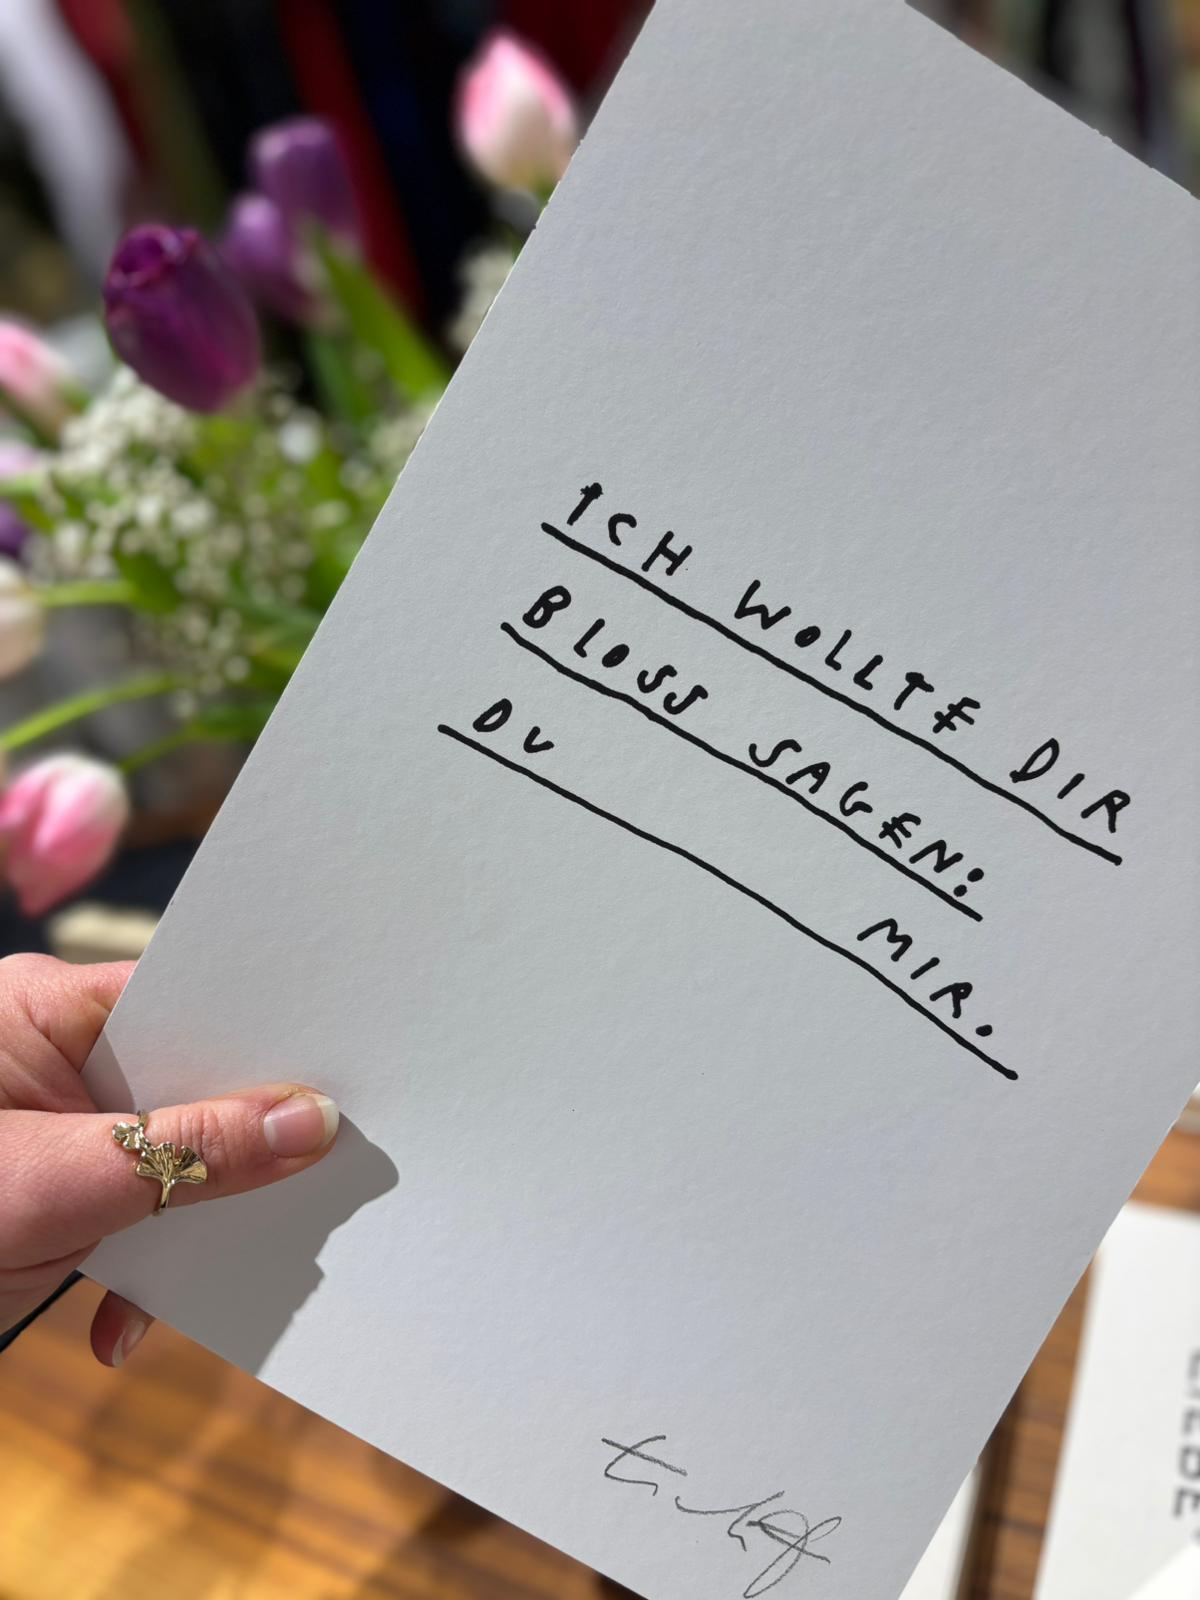 ICH WOLLTE DIR
BLOSS SAGEN:
DU MIR.